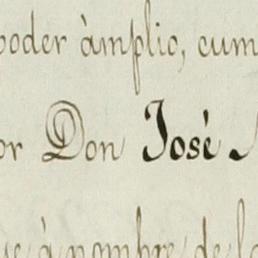 poder àmplio, cum
or Don José
ue á nombre de la